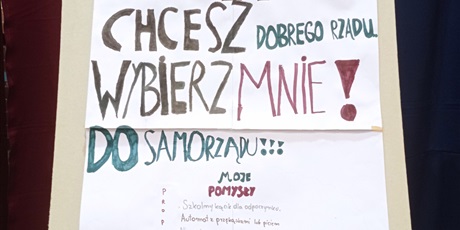 CHCESZ DOBREGO RZĄDU
WYBIERZ MNIE!
DO SAMORZĄDU!!!
MOJE
POMYSŁY
P
R
O
P
Szkolny kącik dla odpoczynku.
Automat z przekąskami lub piciem